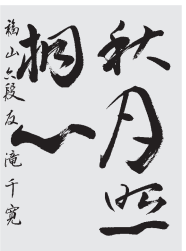 秋月照
桐心
福山六段反滝千寛